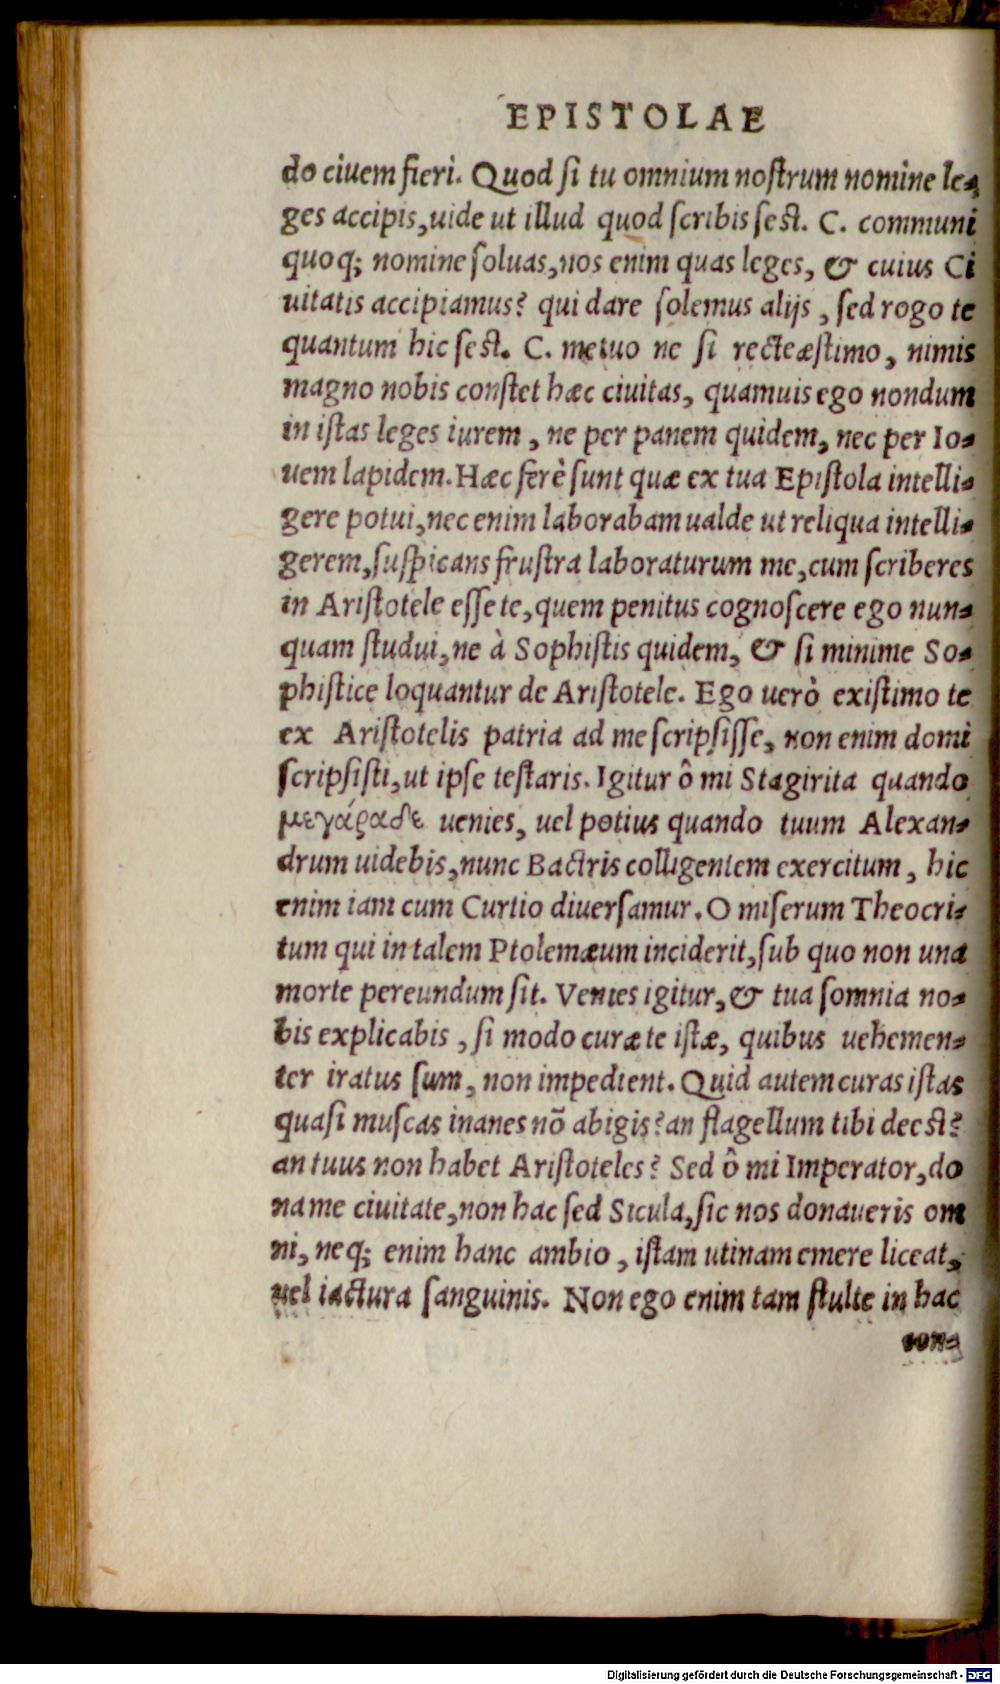 EPISTOLAE
do ciuem fieri. Quod si tu omnium nostrum nomine le-
ges accipis, uide ut illud quod scribis sest. C. communi
quoq; nomine soluas, nos enim quas leges, & cuius Ci
uitatis accipiamus? qui dare solemus alijs, sed rogo te
quantum hic sest. C. metuo ne si recte æstimo, nimis
magno nobis constet hæc ciuitas, quamuis ego nondum
in istas leges iurem, ne per panem quidem, nec per Io-
uem lapidem. Hæc ferè sunt quæ ex tua Epistola intelli-
gere potui, nec enim laborabam ualde ut reliqua intelli-
gerem, suspicans frustra laboraturum me, cum scriberes
in Aristotele esse te, quem penitus cognoscere ego nun-
quam studui, ne à Sophistis quidem, & si minime So-
phistice loquantur de Aristotele. Ego uerò existimo te
ex Aristotelis patria ad me scripsisse, non enim domi
scripsisti, ut ipse testaris. Igitur ô mi Stagirita quando
μεγάραδε uenies, uel potius quando tuum Alexan-
drum uidebis, nunc Bactris colligentem exercitum, hic
enim iam cum Curtio diuersamur. O miserum Theocri-
tum qui in talem Ptolemæum inciderit, sub quo non una
morte pereundum sit. Venies igitur, & tua somnia no-
bis explicabis, si modo curæ te istæ, quibus uehemen-
ter iratus sum, non impedient. Quid autem curas istas
quasi muscas inanes nō abigis? an flagellum tibi deest?
an tuus non habet Aristoteles? Sed ô mi Imperator, do
na me ciuitate, non hac sed Sicula, sic nos donaueris om
ni, neq; enim hanc ambio, istam utinam emere liceat,
uel iactura sanguinis. Non ego enim tam stulte in hac
con-
Digitalisierung gefördert durch die Deutsche Forschungsgemeinschaft - DFG